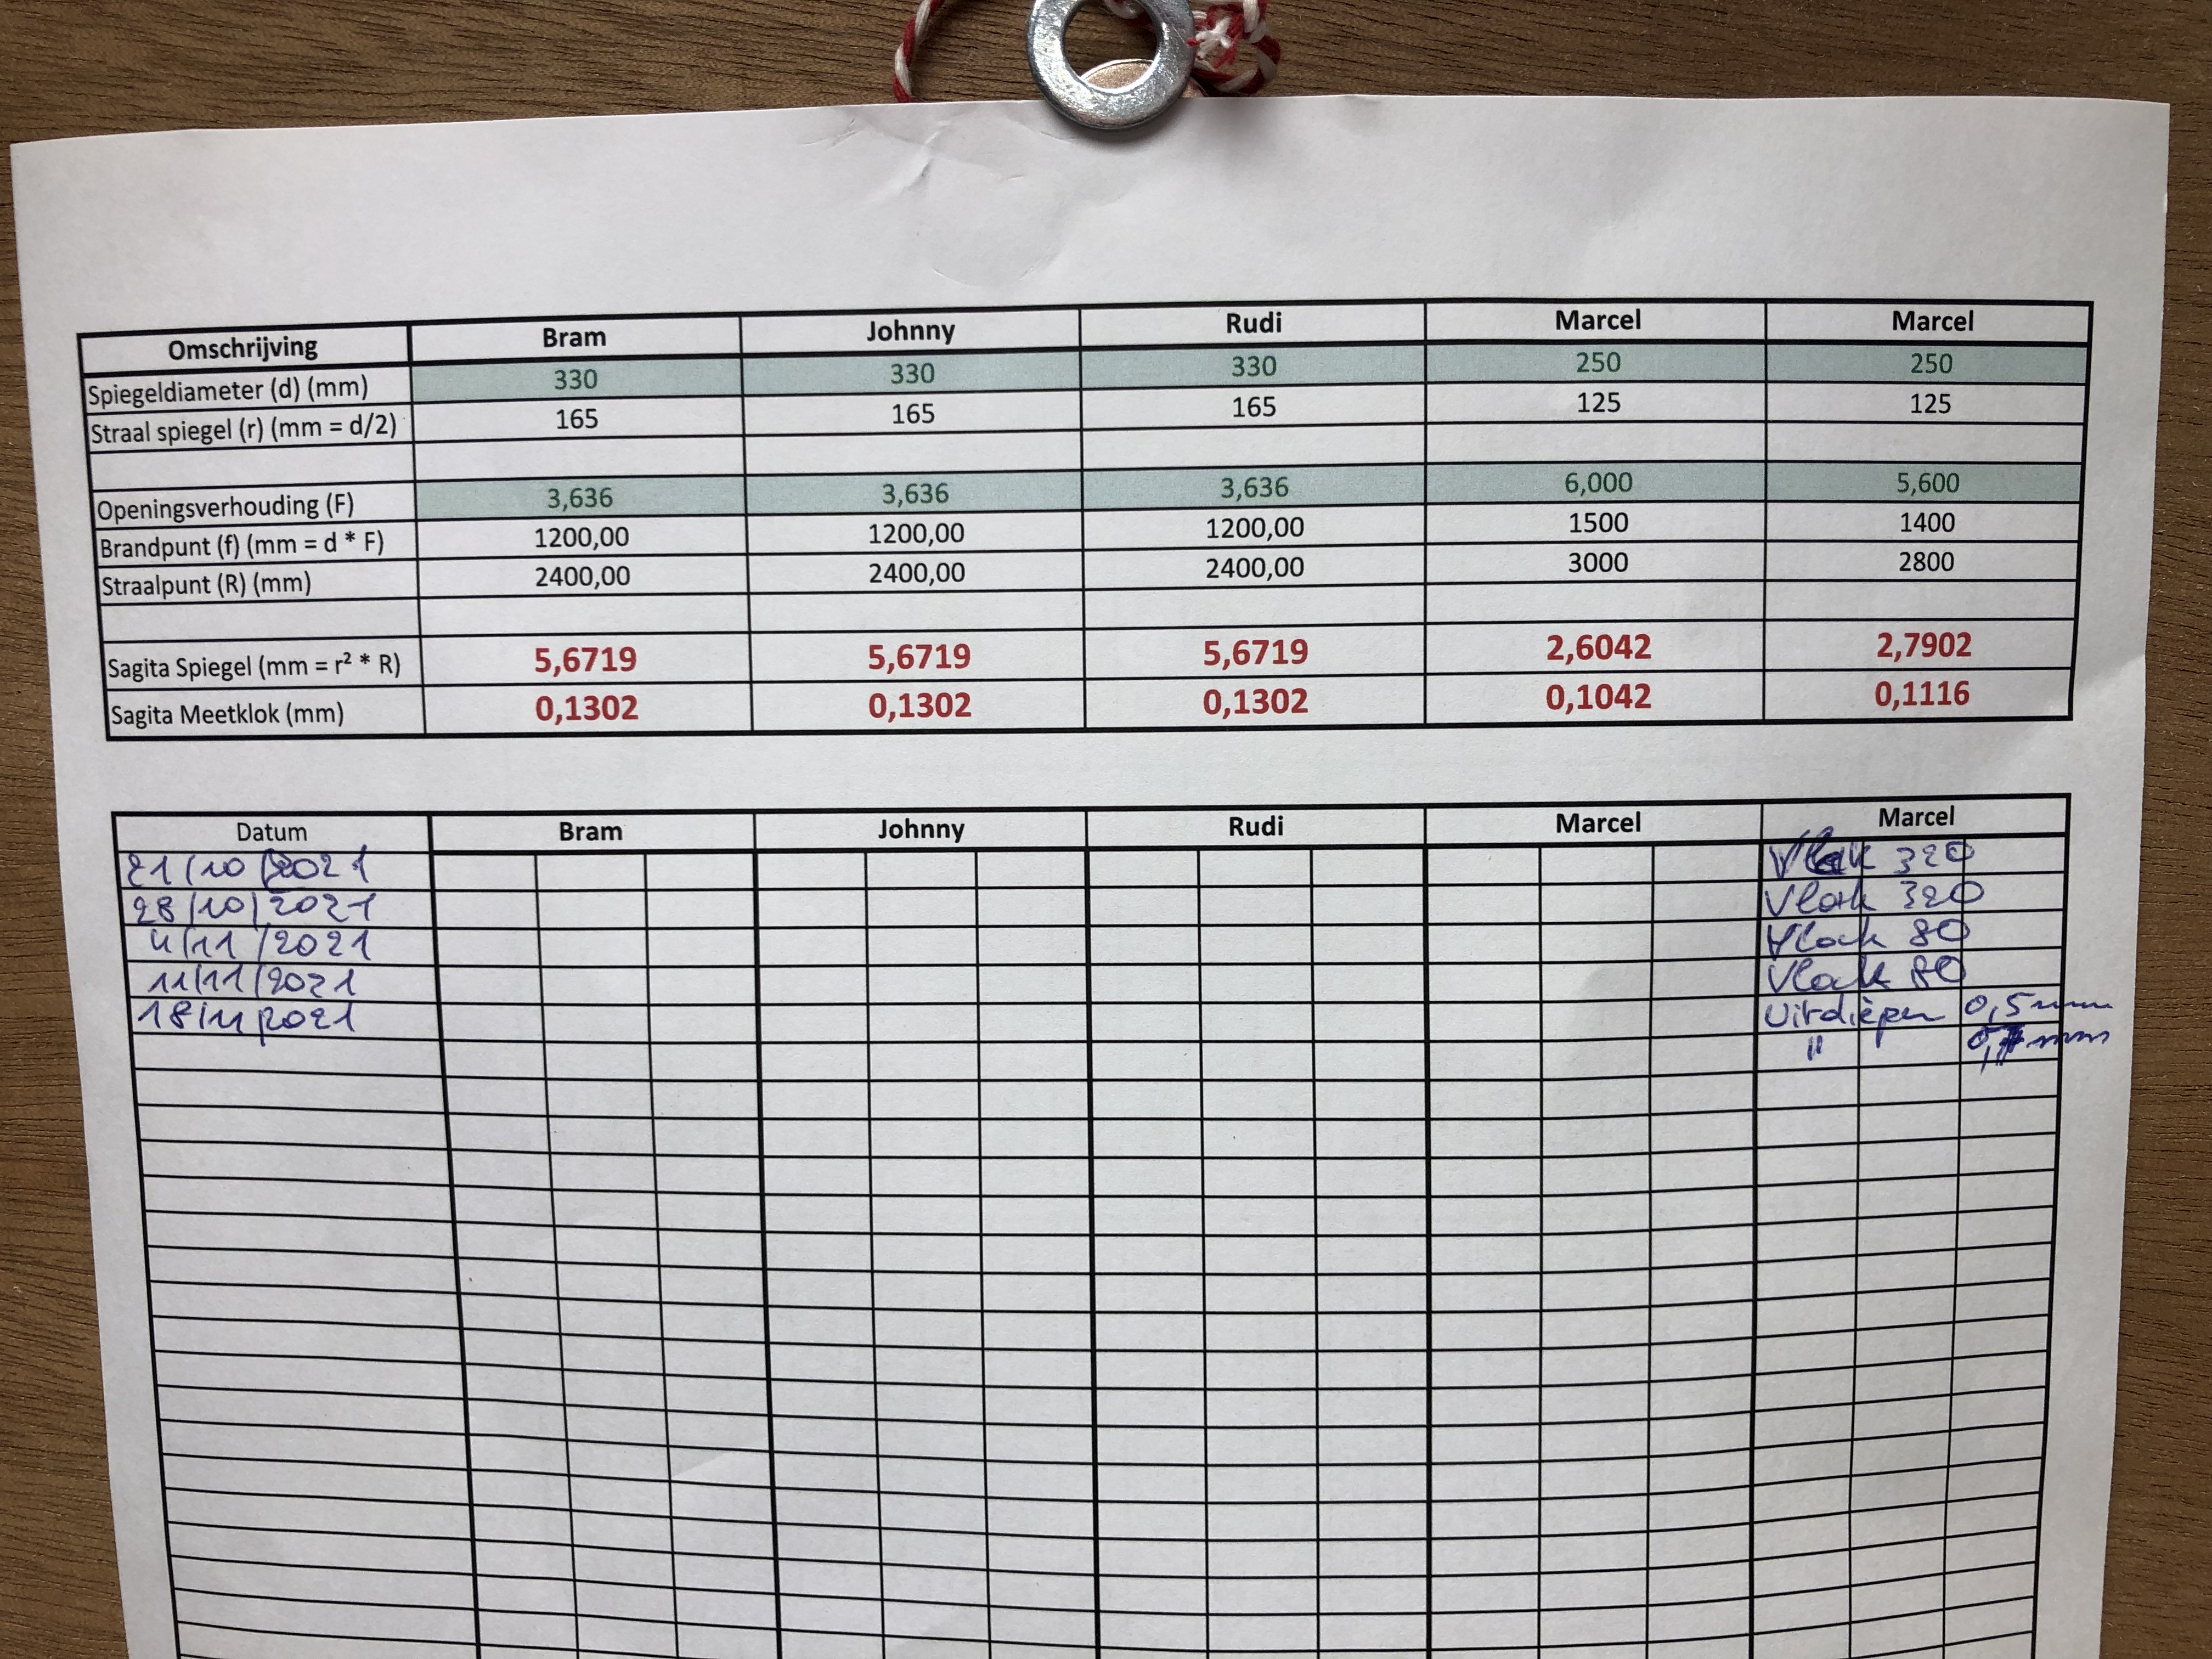 Omschrijving Bram Johnny Rudi Marcel Marcel
Spiegeldiameter (d) (mm) 330 330 330 250 250
Straal spiegel (r) (mm = d/2) 165 165 165 125 125
Openingsverhouding (F) 3,636 3,636 3,636 6,000 5,600
Brandpunt (f) (mm = d * F) 1200,00 1200,00 1200,00 1500 1400
Straalpunt (R) (mm) 2400,00 2400,00 2400,00 3000 2800
Sagita Spiegel (mm = r² * R) 5,6719 5,6719 5,6719 2,6042 2,7902
Sagita Meetklok (mm) 0,1302 0,1302 0,1302 0,1042 0,1116
Datum Bram Johnny Rudi Marcel Marcel
21/10/2021 Vlak 320
28/10/2021 Vlak 320
4/11/2021 Vlak 80
11/11/2021 Vlak 80
18/11/2021 Uitdiepen 0,5 mm
" mm